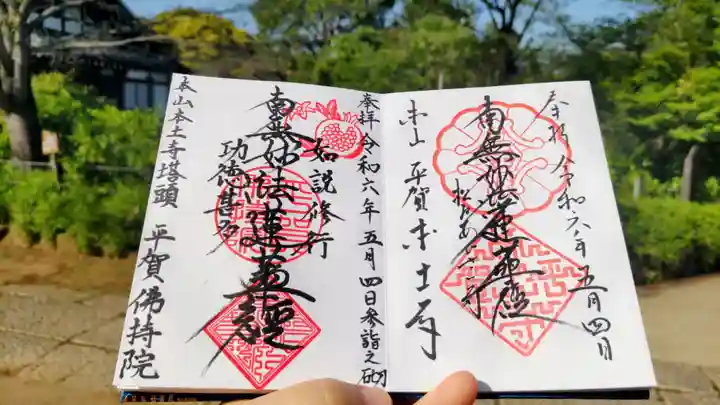 奉拝 令和六年 五月四日
南無妙法蓮華経
本山 平賀本土寺
奉拝 令和六年 五月四日参詣之砌
如説修行
南無妙法蓮華経
功徳甚多
本山本土寺塔頭 平賀佛持院